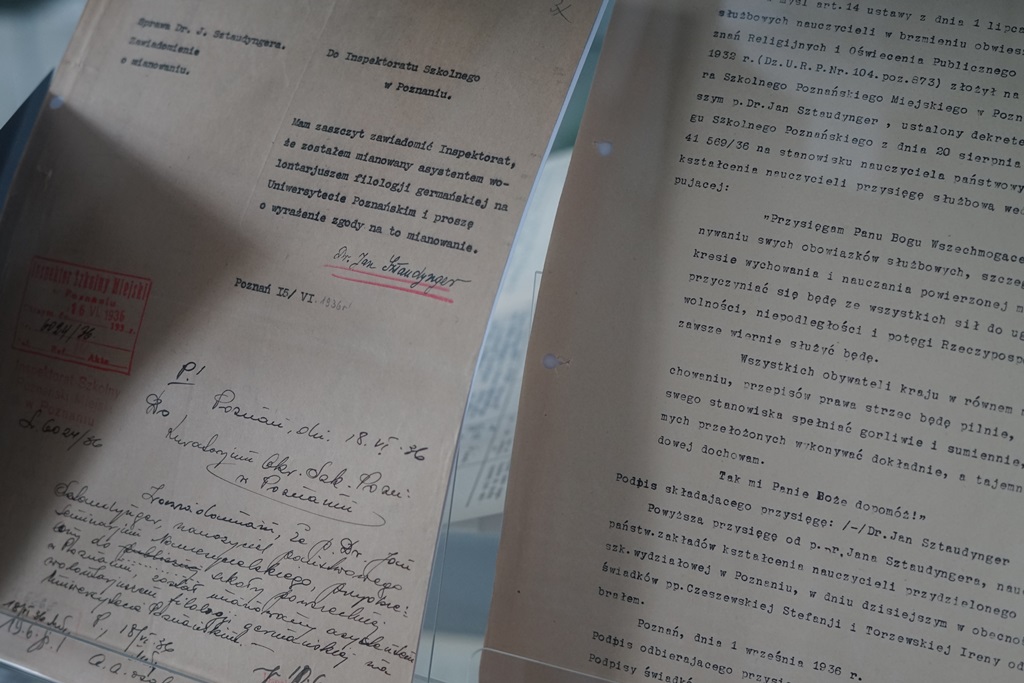 Sprawa Dr. J. Sztaudyngera.
Zawiadomienie
o mianowaniu.
Do Inspektoratu Szkolnego
w Poznaniu.
Mam zaszczyt zawiadomić Inspektorat,
że zostałem mianowany asystentem wo-
lontarjuszem filologji germańskiej na
Uniwersytecie Poznańskim i proszę
o wyrażenie zgody na to mianowanie.
Dr. Jan Sztaudynger
Poznań 15/ VI 1936r
Inspektor Szkolny Miejski
w Poznaniu
16 VI. 1936
6024/36
L 6024/36
P!
Poznań, dn. 18. VI. 36
Do,
Kuratorjum Okr. Szk. Pozn:
w Poznaniu
Zawiadamiam, że p. Dr. Jan
Sztaudynger, nauczyciel państwowego
Seminarjum Nauczycielskiego,
do szkoły powszechnej
w Poznaniu, został mianowany asystentem
wolontarjuszem filologji germańskiej na
Uniwersytecie Poznańskim.
P, 18/VI 36
196.p.1
a.a.
art.14 ustawy z dnia 1 lipca
służbowych nauczycieli w brzmieniu obwiesz
znań Religijnych i Oświecenia Publicznego
1932 r.(Dz.U.R.P.Nr.104.poz.873) złożył na
ra Szkolnego Poznańskiego Miejskiego w Pozn
szym p.Dr.Jan Sztaudynger , ustalony dekrete
gu Szkolnego Poznańskiego z dnia 20 sierpnia
41 569/36 na stanowisku nauczyciela państwowy
kształcenia nauczycieli przysięgę służbową we
pującej:
"Przysięgam Panu Bogu Wszechmogące
nywaniu swych obowiązków służbowych, szczeg
kresie wychowania i nauczania powierzonej m
przyczyniać się będę ze wszystkich sił do ug
wolności, niepodległości i potęgi Rzeczyposp
zawsze wiernie służyć będę.
Wszystkich obywateli kraju w równem
chowaniu, przepisów prawa strzec będę pilnie,
swego stanowiska spełniać gorliwie i sumiennie,
mych przełożonych wykonywać dokładnie, a tajemn
dowej dochowam.
Tak mi Panie Boże dopomóż!"
Podpis składającego przysięgę: /-/Dr.Jan Sztaudynger
Powyższą przysięgę od p.Dr.Jana Sztaudyngera, nauc
państw.zakładów kształcenia nauczycieli przydzielonego
szk.wydziałowej w Poznaniu, w dniu dzisiejszym w obecnoś
świadków pp.Czeszewskiej Stefanji i Torzewskiej Ireny od
brałem.
Poznań, dnia 1 września 1936 r.
Podpis odbierającego przysię
Podpisy świadkó